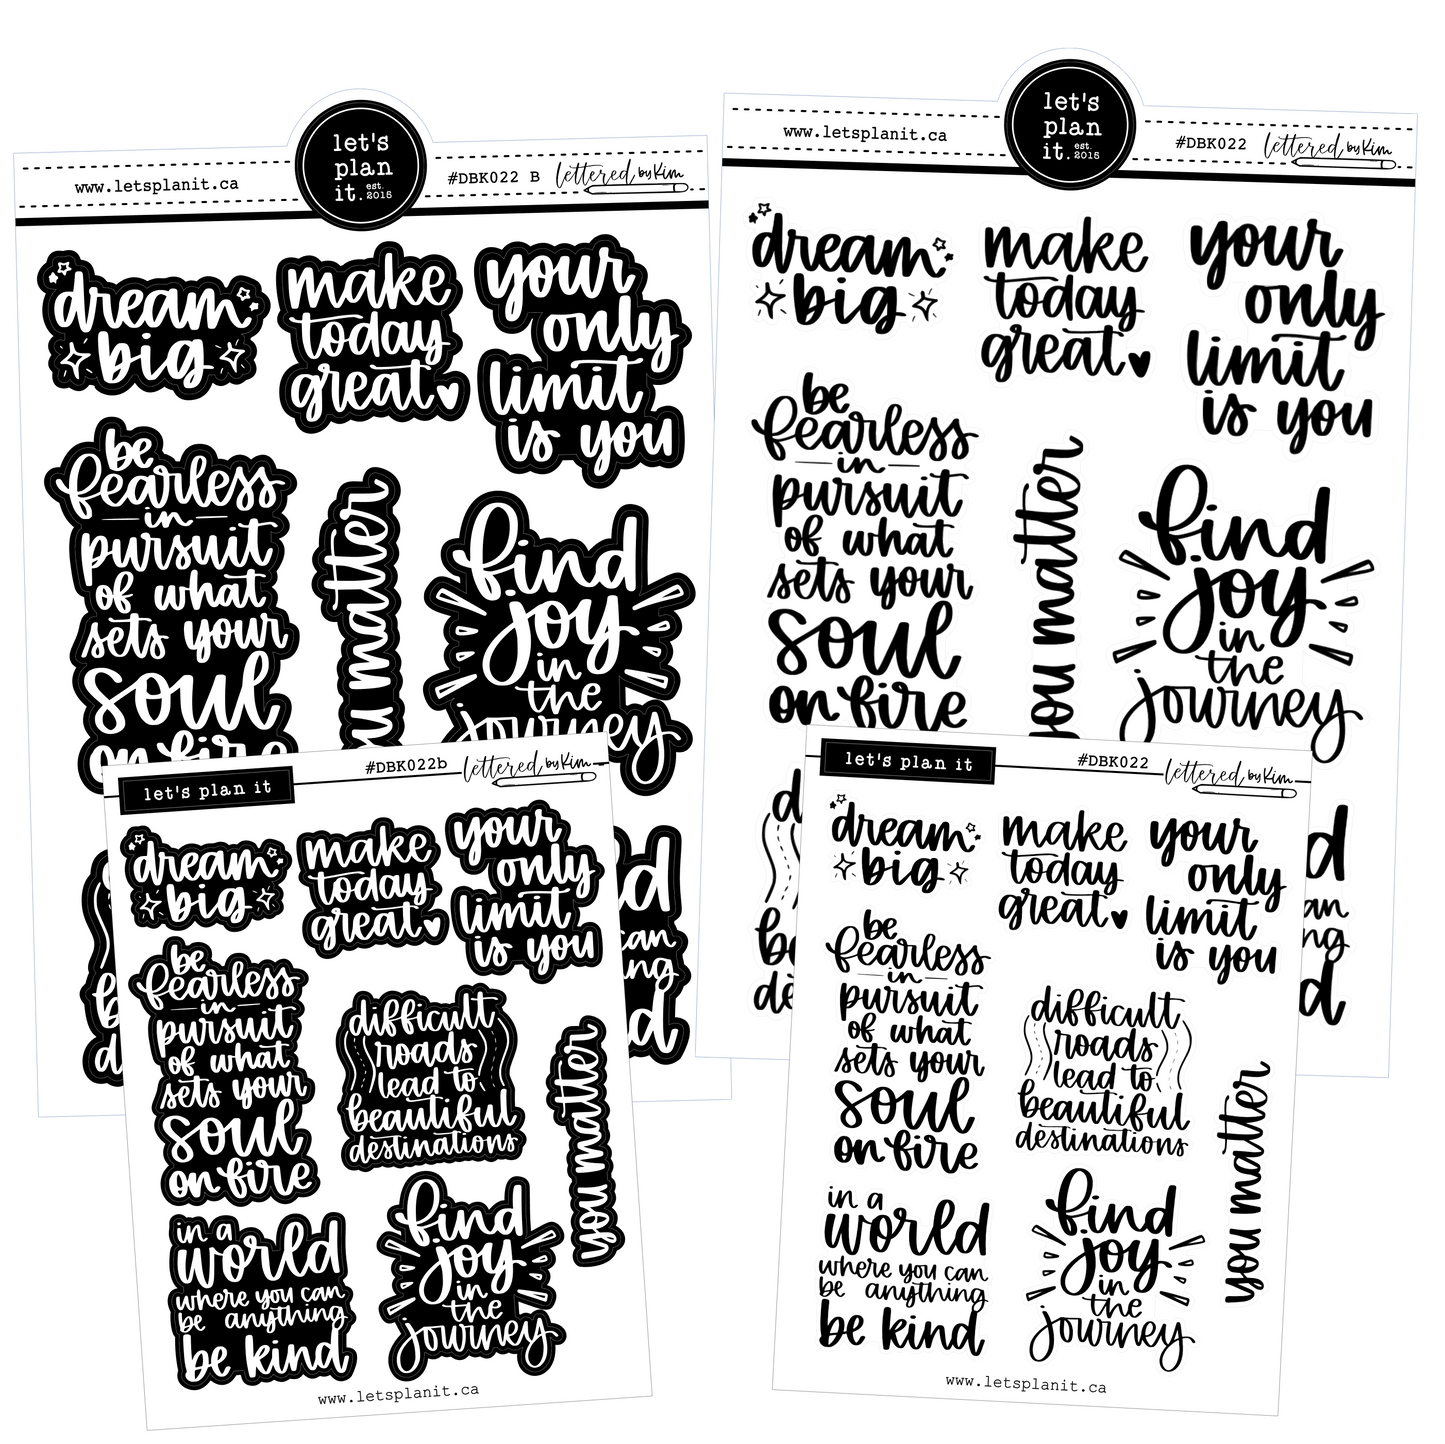 let's
plan
it. est. 2015
www.letsplanit.ca
#DBK022 B
lettered by Kim
dream
big
make
today
great
your
only
limit
is you
be
fearless
in
pursuit
of what
sets your
soul
on fire
matter
find
joy
in
the
journey
let's
plan
it. est. 2015
www.letsplanit.ca
#DBK022
lettered by Kim
dream
big
make
today
great
your
only
limit
is you
be
fearless
in
pursuit
of what
sets your
soul
on fire
you matter
find
joy
in
the
journey
let's plan it
#DBK022b
lettered by Kim
dream
big
make
today
great
your
only
limit
is you
be
fearless
in
pursuit
of what
sets your
soul
on fire
difficult
roads
lead to
beautiful
destinations
you matter
in a
world
where you can
be anything
be kind
find
joy
in
the
journey
www.letsplanit.ca
let's plan it
#DBK022
lettered by Kim
dream
big
make
today
great
your
only
limit
is you
be
fearless
in
pursuit
of what
sets your
soul
on fire
difficult
roads
lead to
beautiful
destinations
you matter
in a
world
where you can
be anything
be kind
find
joy
in
the
journey
www.letsplanit.ca